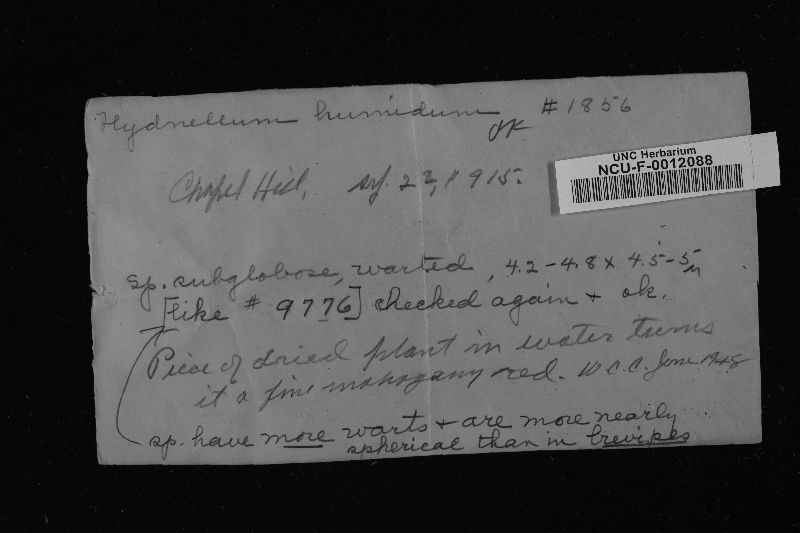 Hydnellum humidum #1856
OK
UNC Herbarium
NCU-F-0012088
Chapel Hill, 1915.
sp. subglobose, warted, 4.2-4.8 x 4.5-5µ
[like # 9776] checked again + ok.
Piece of dried plant in water turns
it a fine mahogany red. W.C.C. June 1948
sp. have more warts + are more nearly
spherical than in brevipes